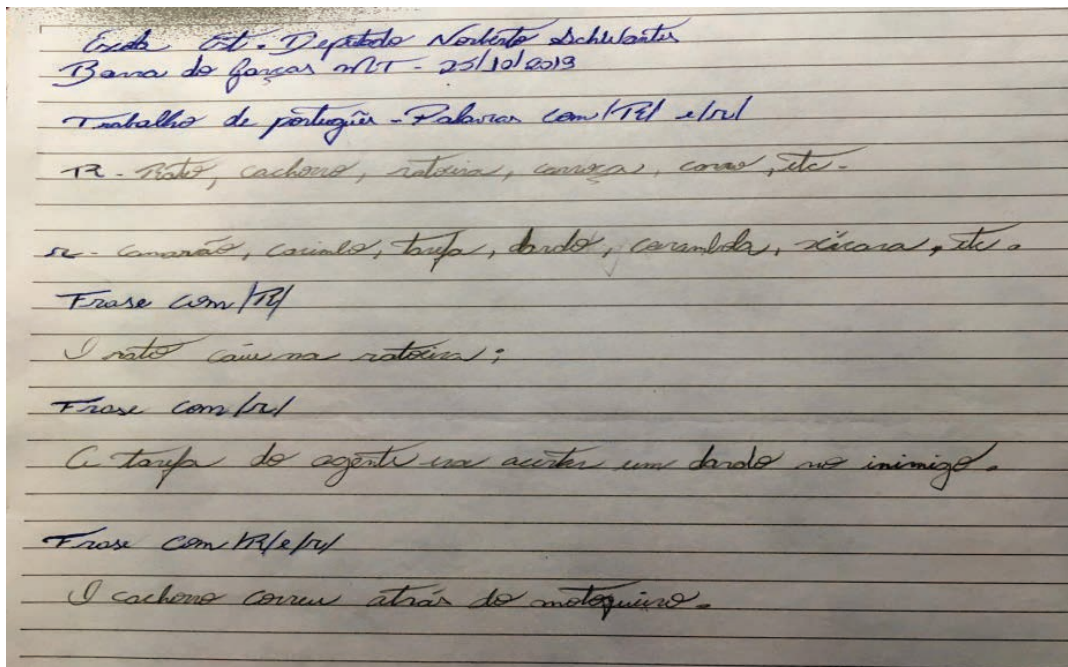 Escola Est. Deputado Norberto Schwantes
Barra do Garças MT - 25/10/2019
Trabalho de português - Palavras com /R/ e /r/
R - Rato, cachorro, ratoeira, carroça, carro, etc.
r - camarão, carimbo, tarefa, dardo, carambola, xícara, etc.
Frase com /R/
O rato caiu na ratoeira;
Frase com /r/
A tarefa do agente era acertar um dardo no inimigo.
Frase com /R/ e /r/
O cachorro correu atrás do motoqueiro.